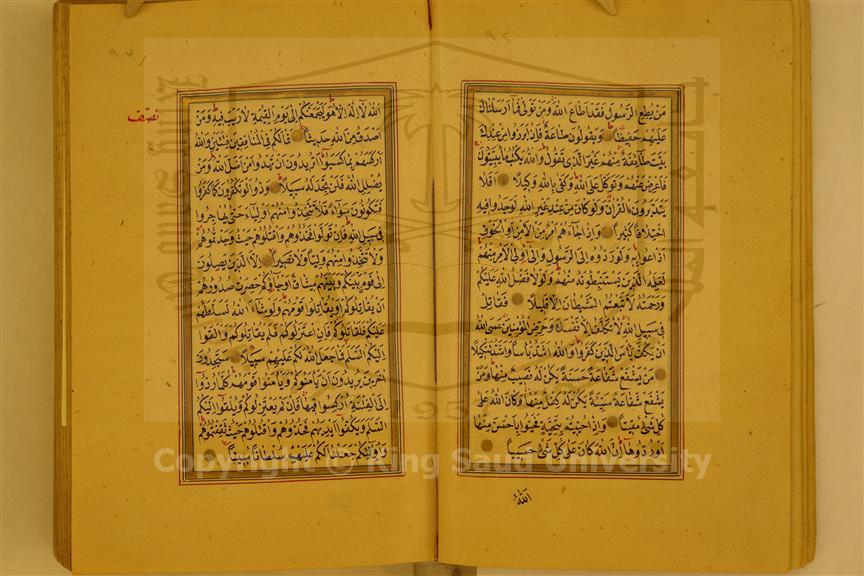 مَنْ يُطِعِ الرَّسُولَ فَقَدْ اَطَاعَ اللّٰهَ وَمَنْ تَوَلّٰى فَمَا اَرْسَلْنَاكَ
عَلَيْهِمْ حَفِيظًا وَيَقُولُونَ طَاعَةٌ فَاِذَا بَرَزُوا مِنْ عِنْدِكَ
بَيَّتَ طَائِفَةٌ مِنْهُمْ غَيْرَ الَّذِى تَقُولُ وَاللّٰهُ يَكْتُبُ مَا يُبَيِّتُونَ
فَاَعْرِضْ عَنْهُمْ وَتَوَكَّلْ عَلَى اللّٰهِ وَكَفٰى بِاللّٰهِ وَكِيلًا اَفَلَا
يَتَدَبَّرُونَ الْقُرْاٰنَ وَلَوْ كَانَ مِنْ عِنْدِ غَيْرِ اللّٰهِ لَوَجَدُوا فِيهِ
اخْتِلَافًا كَثِيرًا وَاِذَا جَاءَهُمْ اَمْرٌ مِنَ الْاَمْنِ اَوِ الْخَوْفِ
اَذَاعُوا بِهِ وَلَوْ رَدُّوهُ اِلَى الرَّسُولِ وَاِلٰى اُولِى الْاَمْرِ مِنْهُمْ
لَعَلِمَهُ الَّذِينَ يَسْتَنْبِطُونَهُ مِنْهُمْ وَلَوْلَا فَضْلُ اللّٰهِ عَلَيْكُمْ
وَرَحْمَتُهُ لَاتَّبَعْتُمُ الشَّيْطَانَ اِلَّا قَلِيلًا فَقَاتِلْ
فِى سَبِيلِ اللّٰهِ لَا تُكَلَّفُ اِلَّا نَفْسَكَ وَحَرِّضِ الْمُؤْمِنِينَ عَسَى اللّٰهُ
اَنْ يَكُفَّ بَأْسَ الَّذِينَ كَفَرُوا وَاللّٰهُ اَشَدُّ بَأْسًا وَاَشَدُّ تَنْكِيلًا
مَنْ يَشْفَعْ شَفَاعَةً حَسَنَةً يَكُنْ لَهُ نَصِيبٌ مِنْهَا وَمَنْ
يَشْفَعْ شَفَاعَةً سَيِّئَةً يَكُنْ لَهُ كِفْلٌ مِنْهَا وَكَانَ اللّٰهُ عَلٰى
كُلِّ شَىْءٍ مُقِيتًا وَاِذَا حُيِّيتُمْ بِتَحِيَّةٍ فَحَيُّوا بِاَحْسَنَ مِنْهَا
اَوْ رُدُّوهَا اِنَّ اللّٰهَ كَانَ عَلٰى كُلِّ شَىْءٍ حَسِيبًا
اَللّٰهُ
نصف
اَللّٰهُ لَا اِلٰهَ اِلَّا هُوَ لَيَجْمَعَنَّكُمْ اِلٰى يَوْمِ الْقِيٰمَةِ لَا رَيْبَ فِيهِ وَمَنْ
اَصْدَقُ مِنَ اللّٰهِ حَدِيثًا فَمَا لَكُمْ فِى الْمُنَافِقِينَ فِئَتَيْنِ وَاللّٰهُ
اَرْكَسَهُمْ بِمَا كَسَبُوا اَتُرِيدُونَ اَنْ تَهْدُوا مَنْ اَضَلَّ اللّٰهُ وَمَنْ
يُضْلِلِ اللّٰهُ فَلَنْ تَجِدَ لَهُ سَبِيلًا وَدُّوا لَوْ تَكْفُرُونَ كَمَا كَفَرُوا
فَتَكُونُونَ سَوَاءً فَلَا تَتَّخِذُوا مِنْهُمْ اَوْلِيَاءَ حَتّٰى يُهَاجِرُوا
فِى سَبِيلِ اللّٰهِ فَاِنْ تَوَلَّوْا فَخُذُوهُمْ وَاقْتُلُوهُمْ حَيْثُ وَجَدْتُمُوهُمْ
وَلَا تَتَّخِذُوا مِنْهُمْ وَلِيًّا وَلَا نَصِيرًا اِلَّا الَّذِينَ يَصِلُونَ
اِلٰى قَوْمٍ بَيْنَكُمْ وَبَيْنَهُمْ مِيثَاقٌ اَوْ جَاؤُكُمْ حَصِرَتْ صُدُورُهُمْ
اَنْ يُقَاتِلُوكُمْ اَوْ يُقَاتِلُوا قَوْمَهُمْ وَلَوْ شَاءَ اللّٰهُ لَسَلَّطَهُمْ
عَلَيْكُمْ فَلَقَاتَلُوكُمْ فَاِنِ اعْتَزَلُوكُمْ فَلَمْ يُقَاتِلُوكُمْ وَاَلْقَوْا
اِلَيْكُمُ السَّلَمَ فَمَا جَعَلَ اللّٰهُ لَكُمْ عَلَيْهِمْ سَبِيلًا سَتَجِدُونَ
اٰخَرِينَ يُرِيدُونَ اَنْ يَأْمَنُوكُمْ وَيَأْمَنُوا قَوْمَهُمْ كُلَّمَا رُدُّوا
اِلَى الْفِتْنَةِ اُرْكِسُوا فِيهَا فَاِنْ لَمْ يَعْتَزِلُوكُمْ وَيُلْقُوا اِلَيْكُمُ
السَّلَمَ وَيَكُفُّوا اَيْدِيَهُمْ فَخُذُوهُمْ وَاقْتُلُوهُمْ حَيْثُ ثَقِفْتُمُوهُمْ
وَاُولٰئِكُمْ جَعَلْنَا لَكُمْ عَلَيْهِمْ سُلْطَانًا مُبِينًا
Copyright © King Saud University